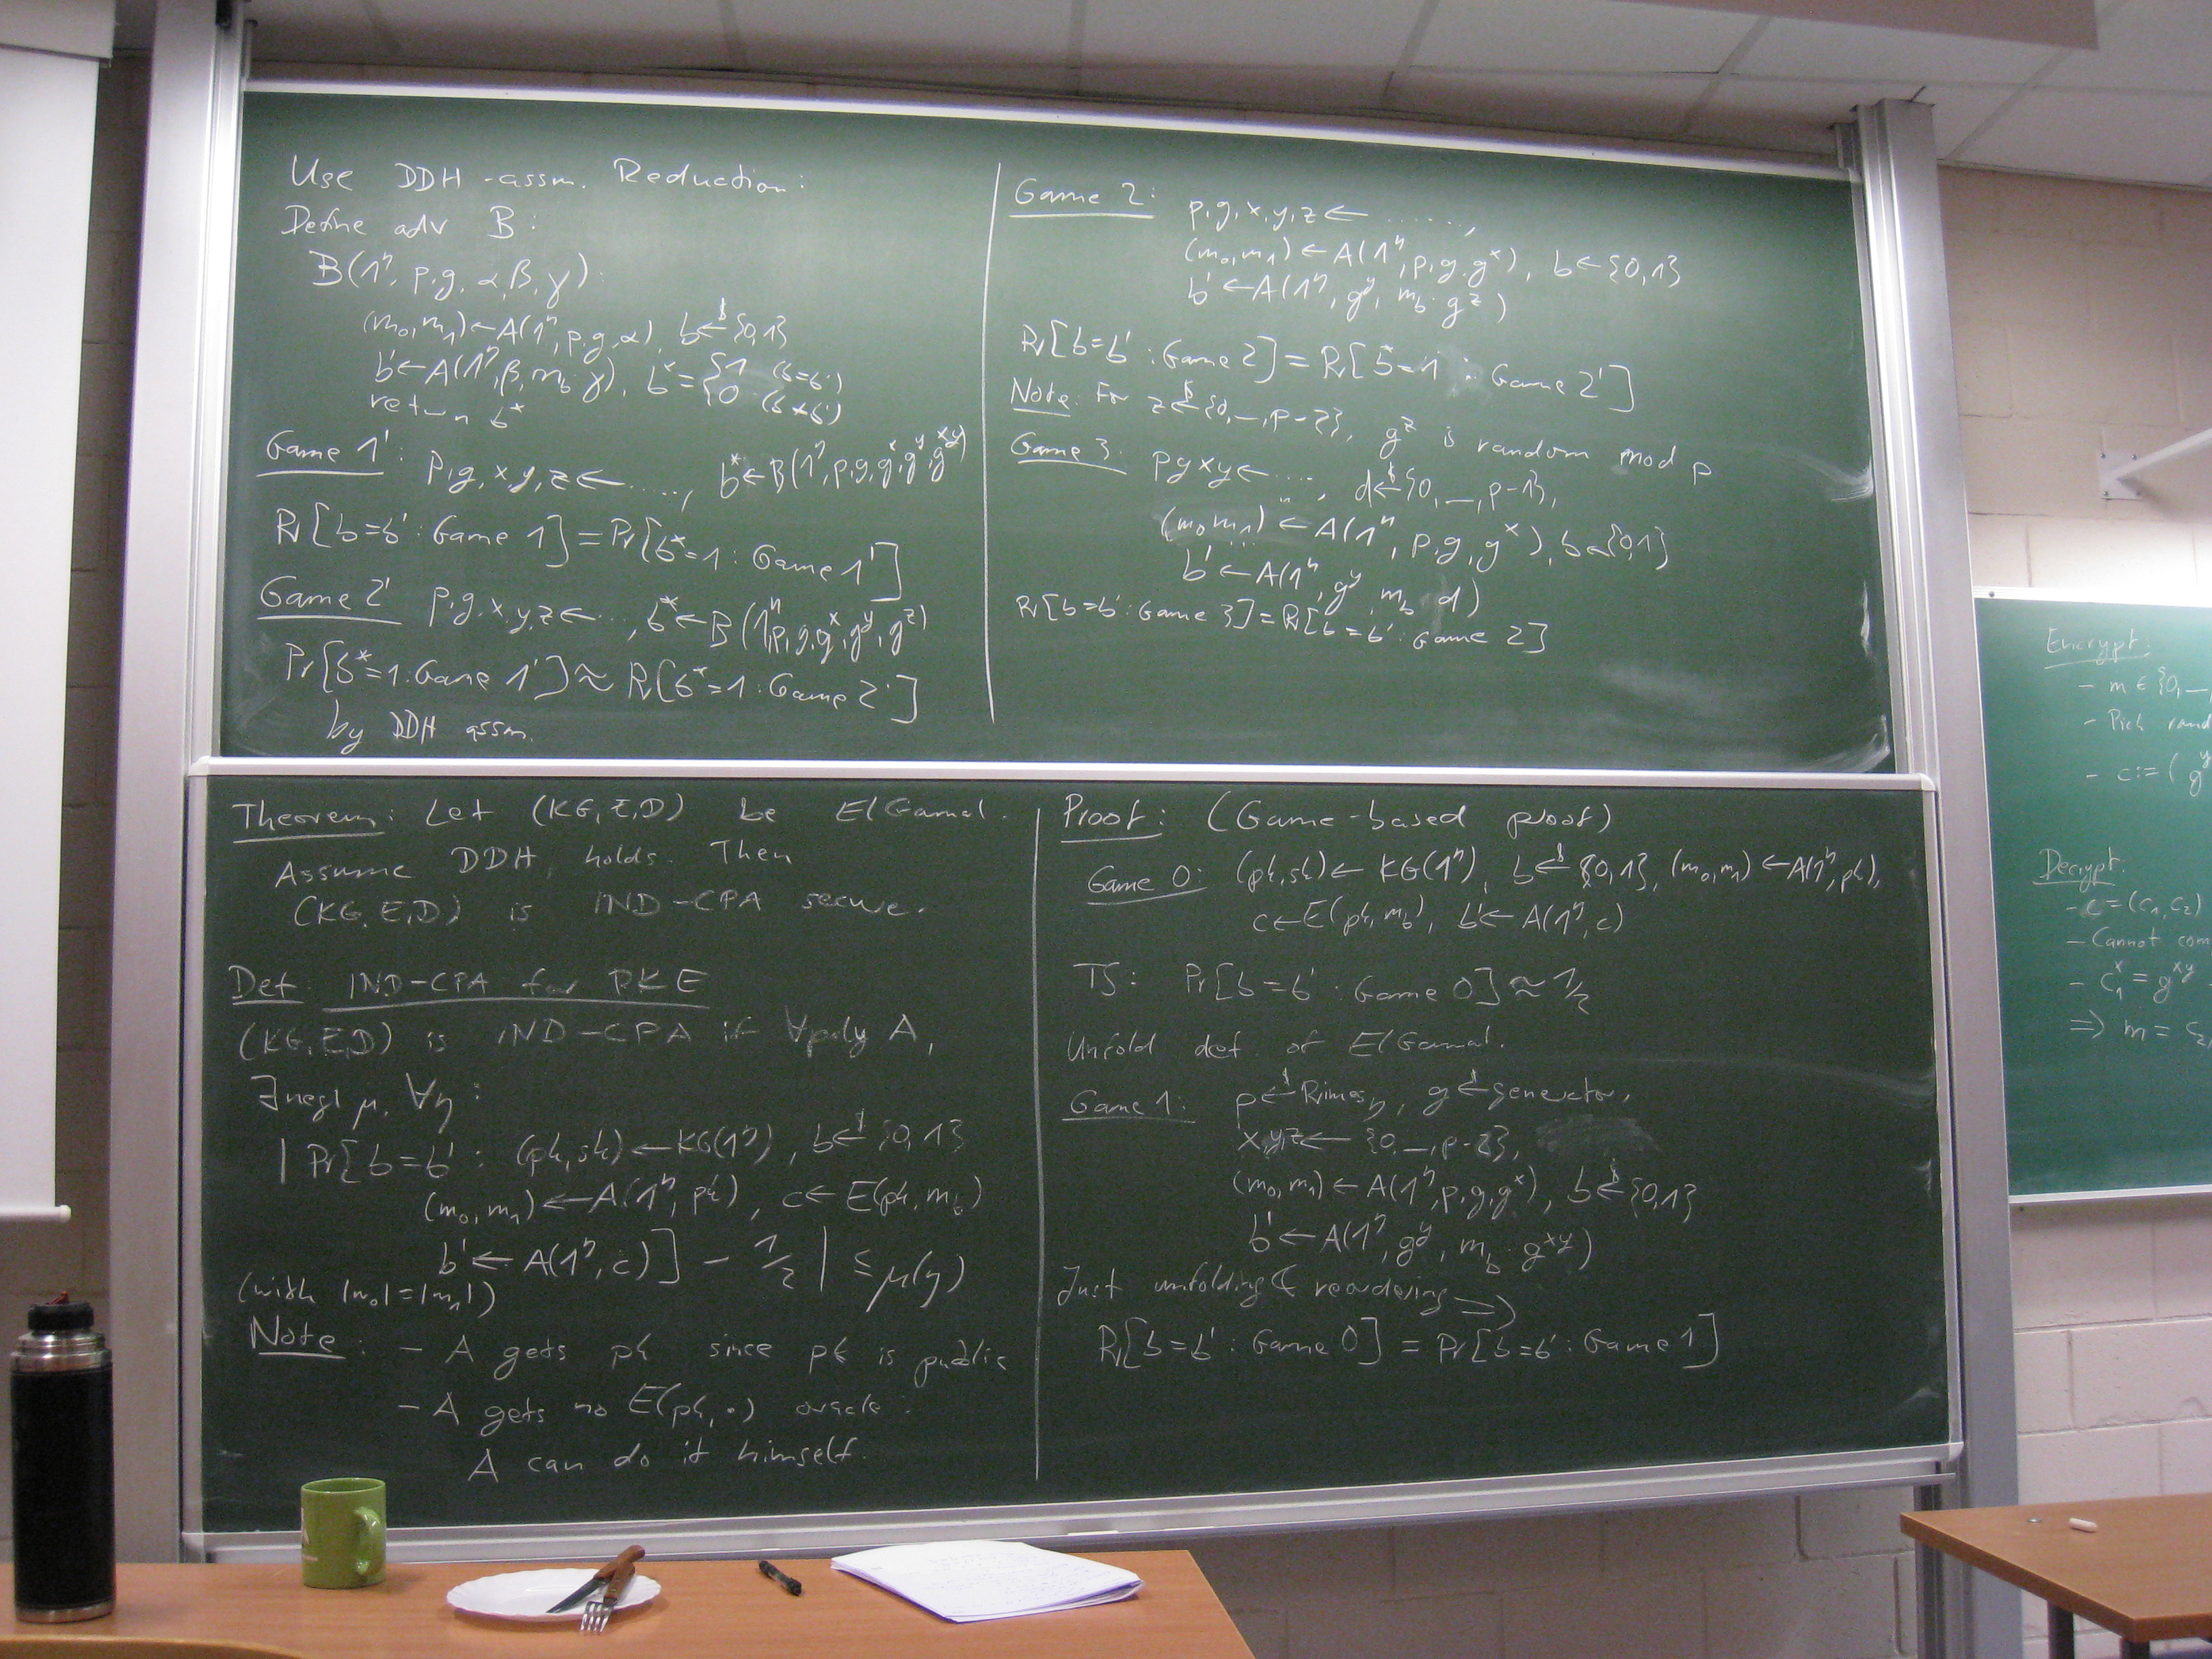 Use DDH-assm. Reduction:
Define adv B:
B(1^η, p,g, α,β,γ):
(m₀,m₁)←A(1^η,p,g,α), b←$ {0,1}
b'←A(1^η,β,m_b·γ), b* = {1 (b=b')
{0 (b≠b')
return b*
Game 1': p,g,x,y,z←....., b*←B(1^η,p,g,g^x,g^y,g^xy)
Pr[b=b' : Game 1]=Pr[b*=1 : Game 1']
Game 2' p,g,x,y,z←..., b*←B(1^η,p,g,g^x,g^y,g^z)
Pr[b*=1:Game 1']≈Pr[b*=1:Game 2']
by DDH assm.
Game 2: p,g,x,y,z←......,
(m₀,m₁)←A(1^η,p,g,g^x), b←{0,1}
b'←A(1^η,g^y,m_b·g^z)
Pr[b=b' : Game 2]=Pr[b*=1 : Game 2']
Note: For z←$ {0,...,p-2}, g^z is random mod p
Game 3: p g x y←...., d←$ {0,...,p-1},
(m₀,m₁)←A(1^η,p,g,g^x), b←{0,1}
b'←A(1^η,g^y,m_b d)
Pr[b=b' : Game 3]=Pr[b=b' : Game 2]
Theorem: Let (KG,E,D) be ElGamal.
Assume DDH holds. Then
(KG,E,D) is IND-CPA secure.
Def: IND-CPA for PKE
(KG,E,D) is IND-CPA if ∀poly A,
∃negl μ, ∀η:
|Pr[b=b' : (pk,sk)←KG(1^η), b←$ {0,1}
(m₀,m₁)←A(1^η,pk), c←E(pk,m_b)
b'←A(1^η,c)] - 1/2 | ≤ μ(η)
(with |m₀|=|m₁|)
Note: - A gets pk since pk is public
- A gets no E(pk,·) oracle:
A can do it himself.
Proof: (Game-based proof)
Game 0: (pk,sk)←KG(1^η), b←$ {0,1}, (m₀,m₁)←A(1^η,pk),
c←E(pk,m_b), b'←A(1^η,c)
TS: Pr[b=b' : Game 0]≈1/2
Unfold def. of ElGamal.
Game 1: p←$ Primes_η, g←$ generator,
x,y,z←{0,...,p-2},
(m₀,m₁)←A(1^η,p,g,g^x), b←$ {0,1}
b'←A(1^η,g^y,m_b·g^xy)
Just unfolding & reordering ⇒
Pr[b=b' : Game 0] = Pr[b=b' : Game 1]
Encrypt:
- m ∈ {0,
- Pick rand
- c:=(g^y
Decrypt:
- c=(c₁,c₂)
- Cannot com
- c₁^x = g^xy
⇒ m = c₂